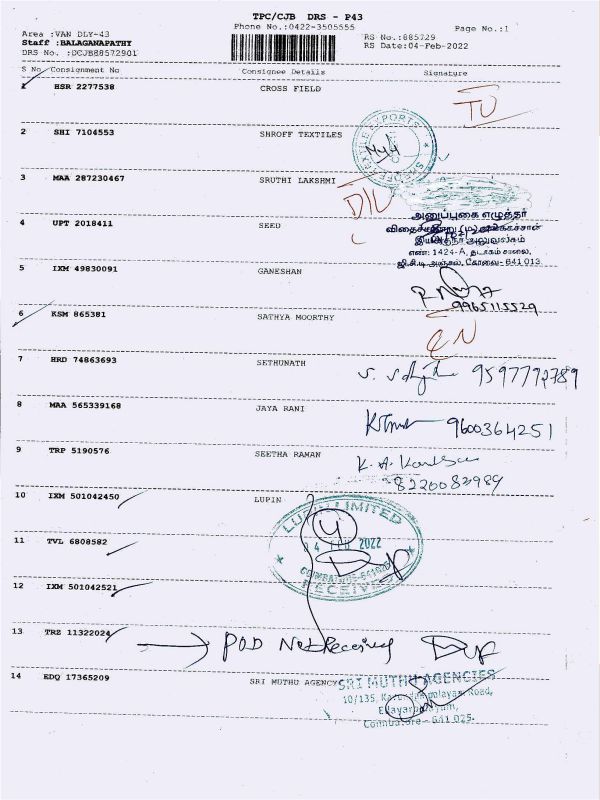 TPC/CJB DRS - P43
Phone No.:0422-3505555
Page No.:1
Area :VAN DLY-43
Staff :BALAGANAPATHY
DRS No. :DCJB88572901
RS No:885729
RS Date:04-Feb-2022
S No. Consignment No Consignee Details Signature
1 HSR 2277538 CROSS FIELD
2 SHI 7104553 SHROFF TEXTILES
3 MAA 287230467 SRUTHI LAKSHMI
4 UPT 2018411 SEED
அனுப்புகை எழுத்தர்
எண்: 1424-A, தடாகம் சாலை,
ஜி.சி.டி அஞ்சல், கோவை- 641 013.
5 IXM 49830091 GANESHAN
9965115529
6 KSM 865381 SATHYA MOORTHY
7 HRD 74863693 SETHUNATH
9597792789
8 MAA 565339168 JAYA RANI
9600364251
9 TRP 5190576 SEETHA RAMAN
8220082989
10 IXM 501042450 LUPIN
LIMITED
11 TVL 6808582
2022
12 IXM 501042521
RECEIVED
13 TRZ 11322024
POD Not Received
14 EDQ 17365209 SRI MUTHU AGENCY
SRI MUTHU AGENCIES
10/135, Road,
Coimbatore - 641 025.